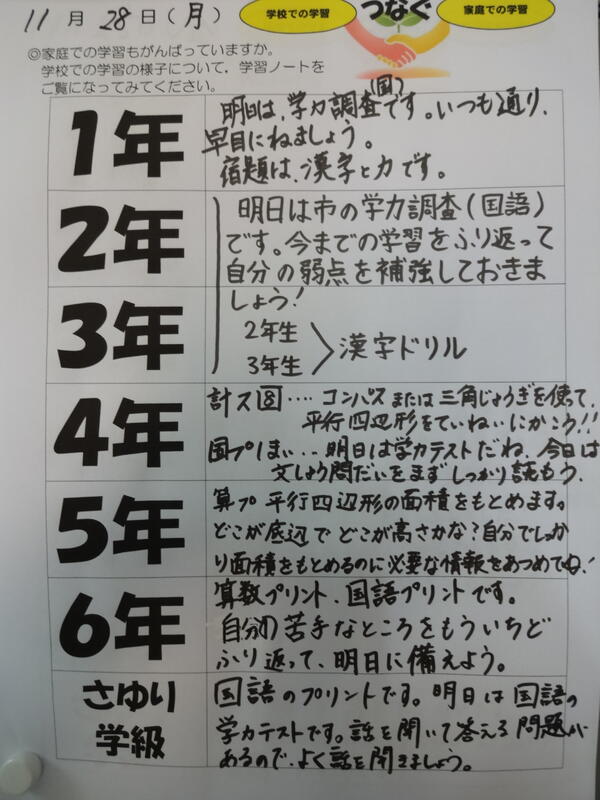 11月28日(月)
学校での学習
つなぐ
家庭での学習
◎家庭での学習もがんばっていますか。
学校での学習の様子について、学習ノートを
ご覧になってみてください。
1年
明日は、学力調査(国)です。いつも通り、
早目にねましょう。
宿題は、漢字と力です。
2年
明日は市の学力調査(国語)
です。今までの学習をふり返って
自分の弱点を補強しておきま
しょう!
3年
2年生
3年生
漢字ドリル
4年
計ス⑧‥‥コンパスまたは三角じょうぎを使って、
平行四辺形をていねいにかこう!!
国プ1まい‥‥明日は学力テストだね。今日は
文しょう問だいをまずしっかり読もう。
5年
算プ 平行四辺形の面積をもとめます。
どこが底辺でどこが高さかな?自分でしっか
り面積をもとめるのに必要な情報をあつめてね!
6年
算数プリント、国語プリントです。
自分の苦手なところをもういちど
ふり返って、明日に備えよう。
さゆり
学級
国語のプリントです。明日は国語の
学力テストです。話を聞いて答える問題が
あるので、よく話を聞きましょう。